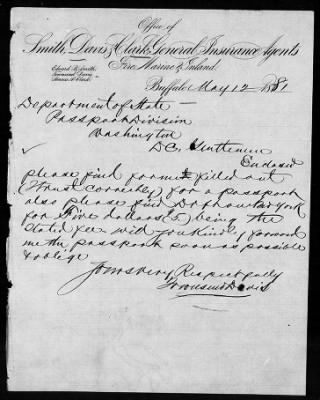 Office of
Smith, Davis & Clark, General Insurance Agents
Fire Marine & Inland.
Edward B. Smith.
Townsend Davis.
Buffalo May 12 1881
Department of State
Passport Division
Washington
D.C. Gentlemen
Enclosed
please find form filled out
(I trust correctly) for a passport
also please find Dr ft on New York
for Five dollars (5) being the
stated fee will you kindly forward
me the passport soon as possible
& oblige
Yours very Respectfully
Townsend Davis